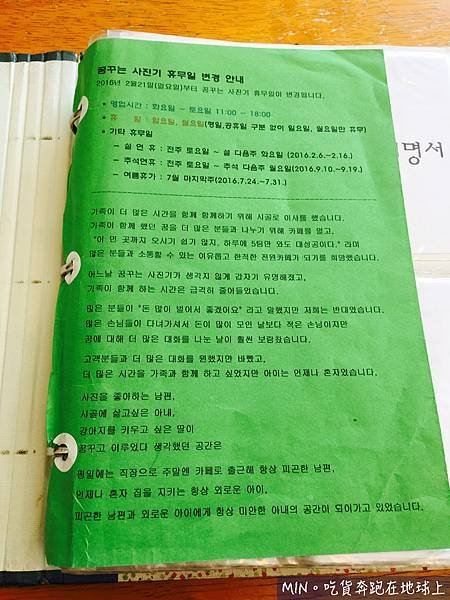 꿈꾸는 사진기 휴무일 변경 안내
2016년 2월21일(일요일)부터 꿈꾸는 사진기 휴무일이 변경됩니다.
• 영업시간 : 화요일 ~ 토요일 11:00 ~ 18:00
• 휴 일 : 일요일, 월요일(평일,공휴일 구분 없이 일요일, 월요일만 휴무)
• 기타 휴무일
– 설 연 휴 : 전주 토요일 ~ 설 다음주 화요일 (2016.2.6.~2.16.)
– 추석연휴 : 전주 토요일 ~ 추석 다음주 월요일(2016.9.10.~9.19.)
– 여름휴가 : 7월 마지막주(2016.7.24.~7.31.)
가족이 더 많은 시간을 함께 함께하기 위해 시골로 이사를 했습니다.
가족이 함께 했던 꿈을 더 많은 분들과 나누기 위해 카페를 열고,
"이 먼 곳까지 오시기 쉽기 않지. 하루에 5팀만 와도 대성공이다." 라며
많은 분들과 소통할 수 있는 여유롭고 한적한 전원카페가 되기를 희망했습니다.
어느날 꿈꾸는 사진기가 생각지 않게 갑자기 유명해졌고,
가족이 함께 하는 시간은 급격히 줄어들었습니다.
많은 분들이 "돈 많이 벌어서 좋겠어요" 라고 말했지만 저희는 반대였습니다.
많은 손님들이 다녀가셔서 돈이 많이 모인 날보다 적은 손님이지만
꿈에 대해 더 많은 대화를 나눈 날이 훨씬 보람찼습니다.
고객분들과 더 많은 대화를 원했지만 바빴고,
더 많은 시간을 가족과 함께 하고 싶었지만 아이는 언제나 혼자였습니다.
사진을 좋아하는 남편,
시골에 살고싶은 아내,
강아지를 키우고 싶은 딸이
꿈꾸고 이루었다 생각했던 공간은
평일에는 직장으로 주말엔 카페로 출근해 항상 피곤한 남편,
언제나 혼자 집을 지키는 항상 외로운 아이,
피곤한 남편과 외로운 아이에게 항상 미안한 아내의 공간이 되어가고 있었습니다.
명서
MIN。吃貨奔跑在地球上